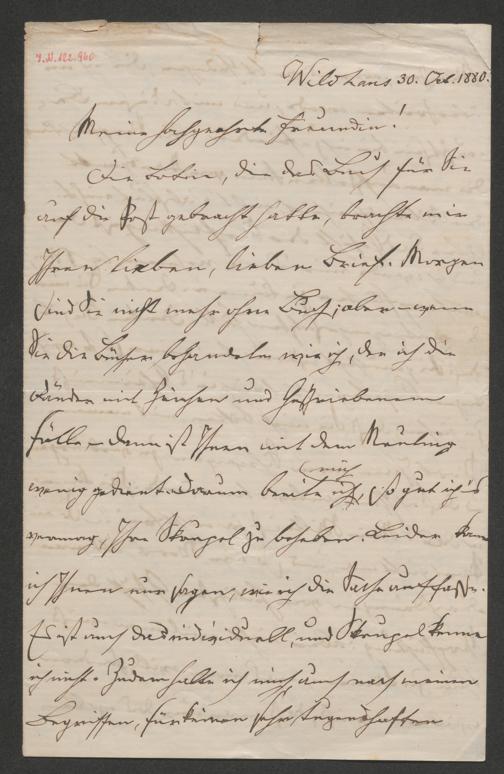 J.N. 122.960
Wildhaus 30. Oct. 1880.
Meine hochgeehrte Freundin!
Die Botin, die das Buch für Sie
auf die Post gebracht hatte, brachte mir
Ihren lieben, lieben Brief. Morgen
sind Sie nicht mehr ohne Buch; aber – wenn
Sie die Bücher behandeln wie ich, der ich die
Ränder mit Zeichen und Geschriebenem
fülle – dann ist Ihnen mit dem Neuling
wenig gedient. Darum beeile ich mich, so gut ich's
vermag, Ihre Skrupel zu beheben. Leider kann
ich Ihnen nur sagen, wie ich die Sache auffasse.
Es ist auch das individuell, und Skrupel kenne
ich nicht. Zudem halte ich mich, auch nach meinen
Begriffen, für keinen sehr Tugendhaften